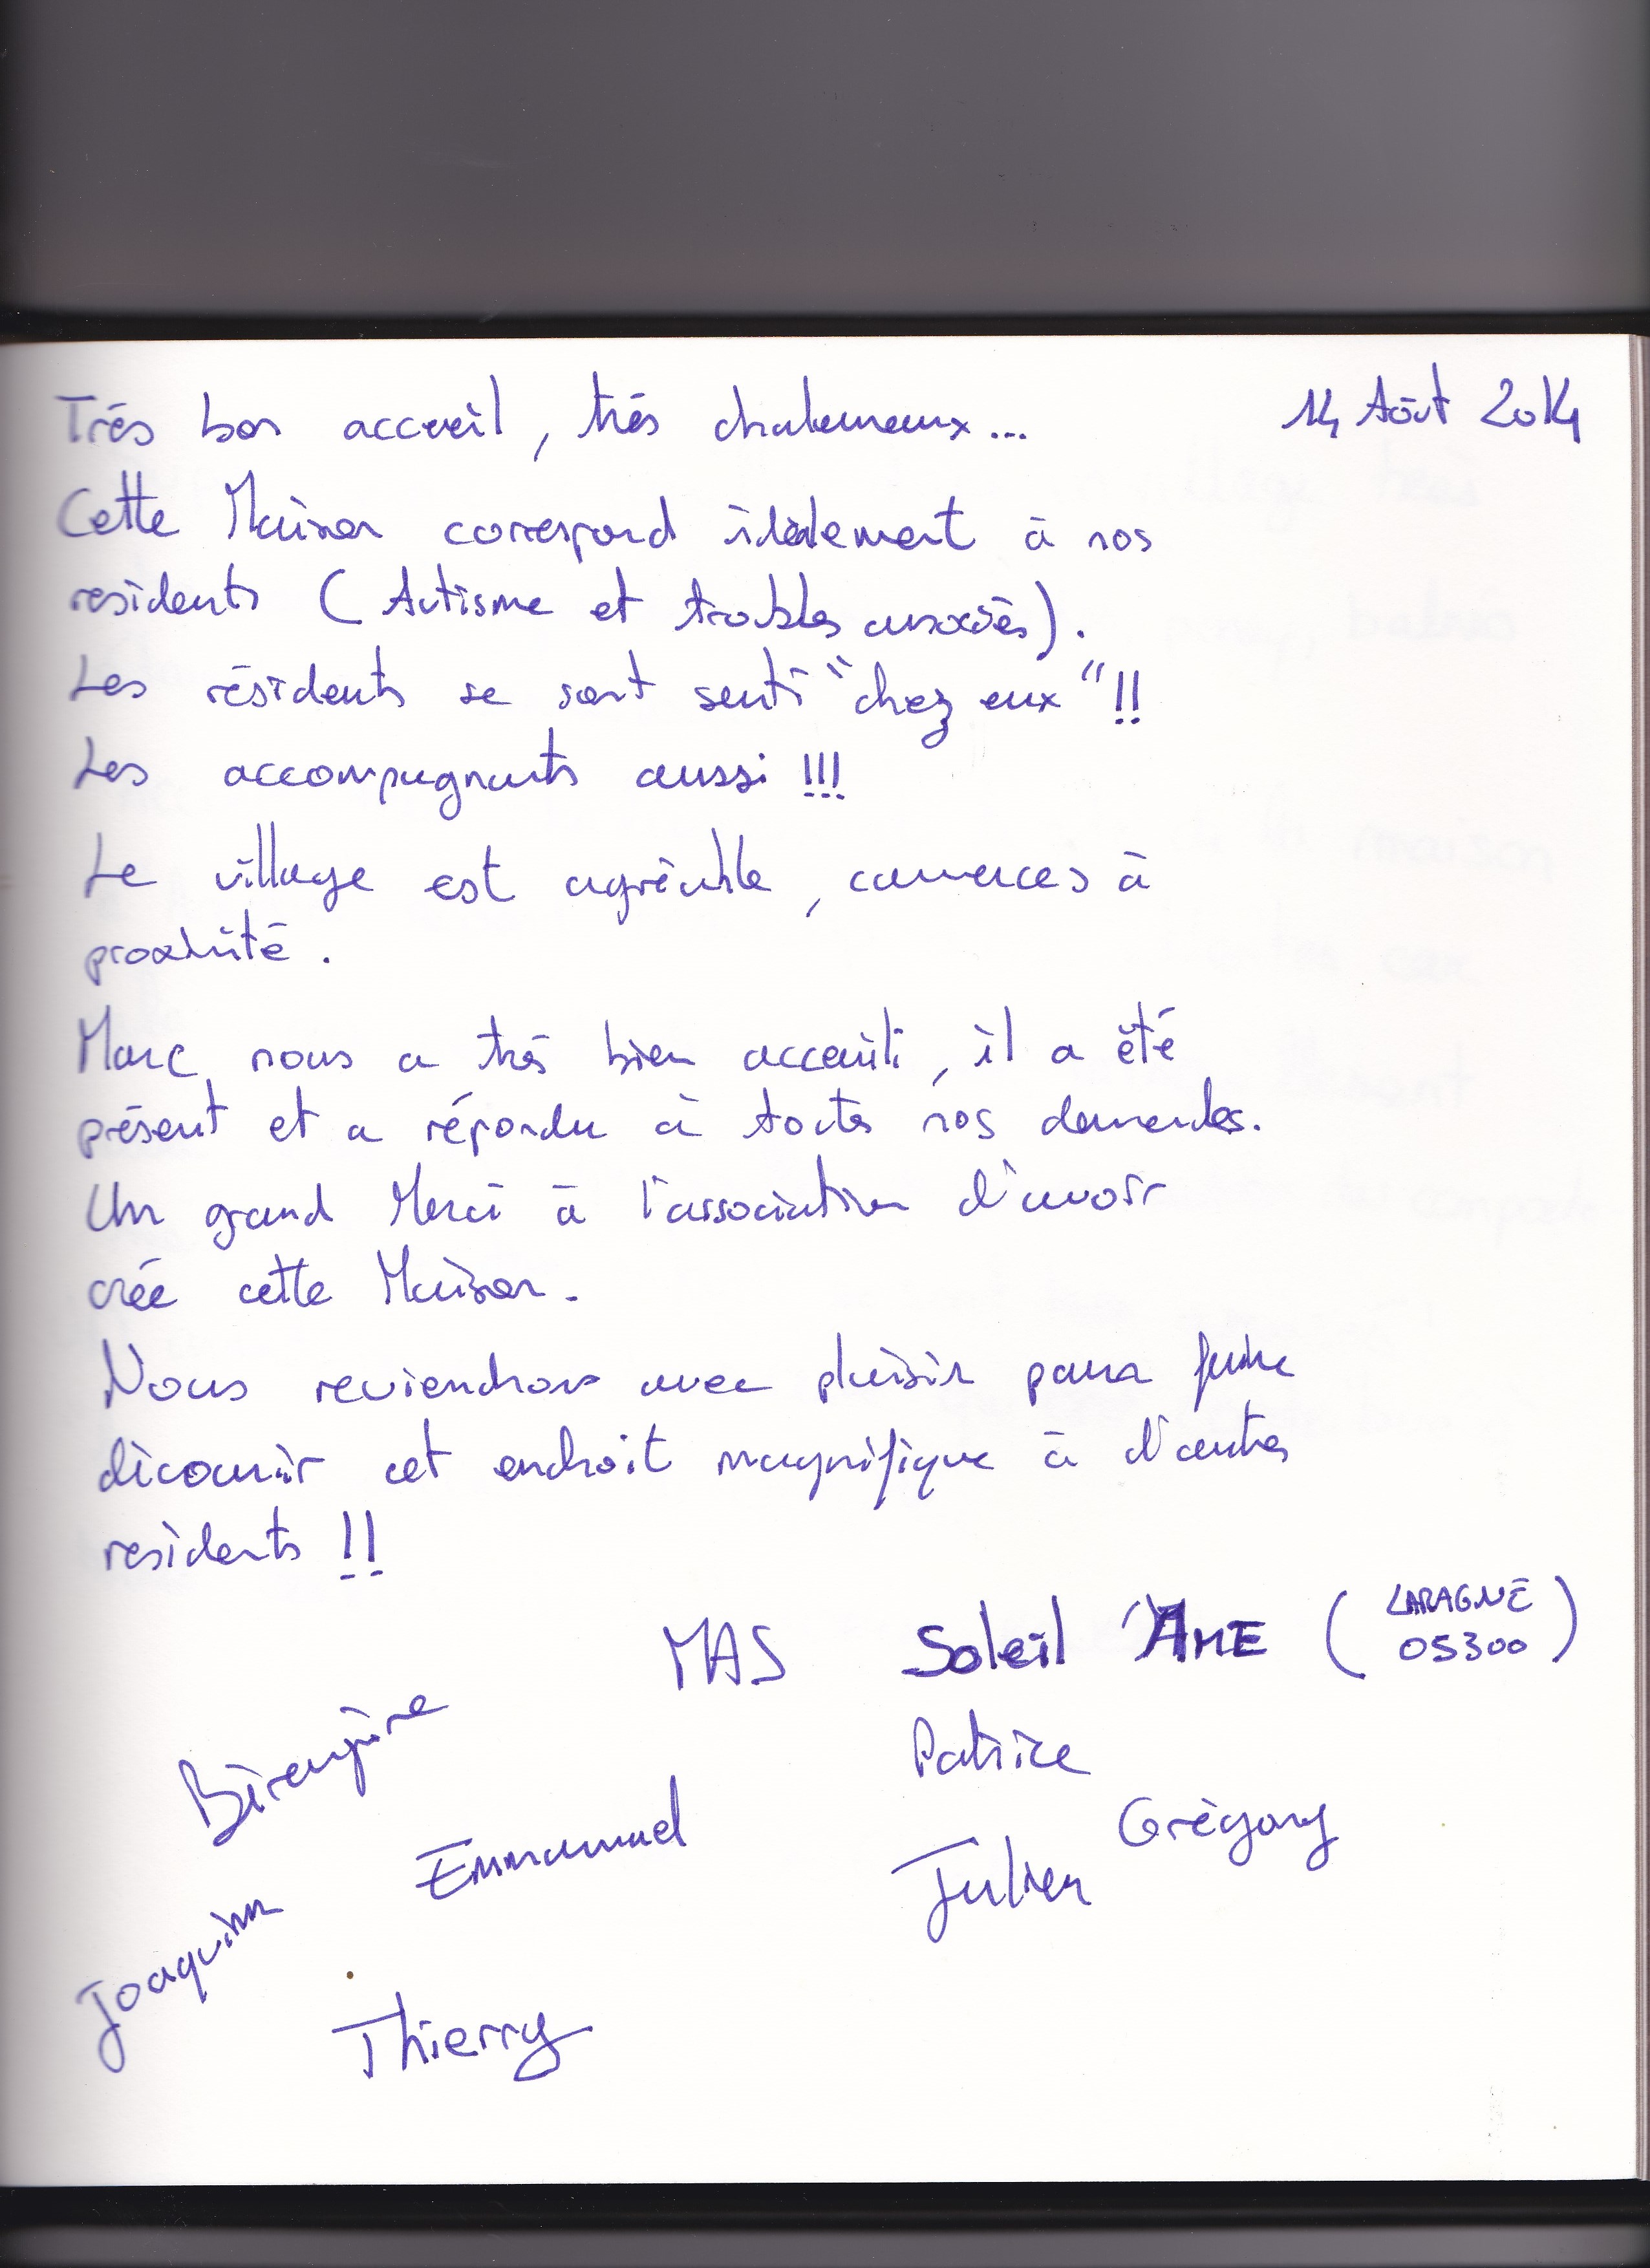 14 Août 2014
Très bon accueil, très chaleureux...
Cette Maison correspond idéalement à nos
residents (Autisme et troubles associés).
Les résidents se sont senti "chez eux"!!
Les accompagnants aussi !!!
Le village est agréable, commerces à
proximité.
Marc nous a très bien accueilli, il a été
présent et a répondu à toutes nos demandes.
Un grand Merci à l'association d'avoir
crée cette Maison.
Nous reviendrons avec plaisir pour faire
découvrir cet endroit magnifique à d'autres
residents !!
MAS Soleil AME (LARAGNE
05300)
Bérengère
Patrice
Emmanuel
Grégory
Julien
Joaquim
Thierry